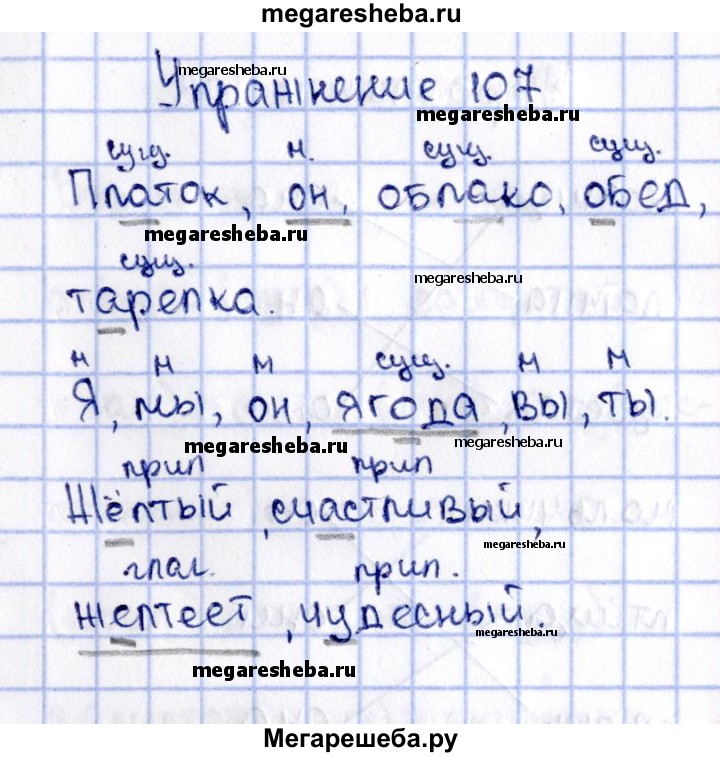 megaresheba.ru
Упражнение 107
megaresheba.ru
megaresheba.ru
сущ. м. сущ. сущ.
Платок, он, облако, обед,
megaresheba.ru
сущ.
megaresheba.ru
тарелка.
м м м сущ. м м
Я, мы, он, ягода, вы, ты.
megaresheba.ru
megaresheba.ru
прил прил
Жёлтый, счастливый,
megaresheba.ru
глаг. прил.
желтеет, чудесный.
megaresheba.ru
megaresheba.ru
Мегарешеба.ру